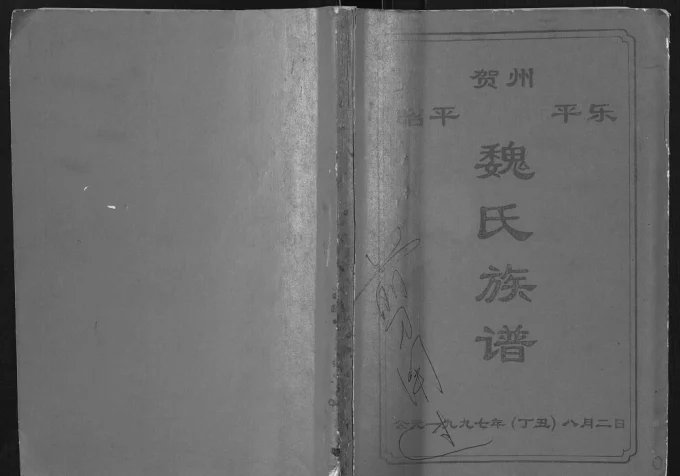 贺州
昭平 平乐
魏氏族谱
公元一九九七年(丁丑)八月二日